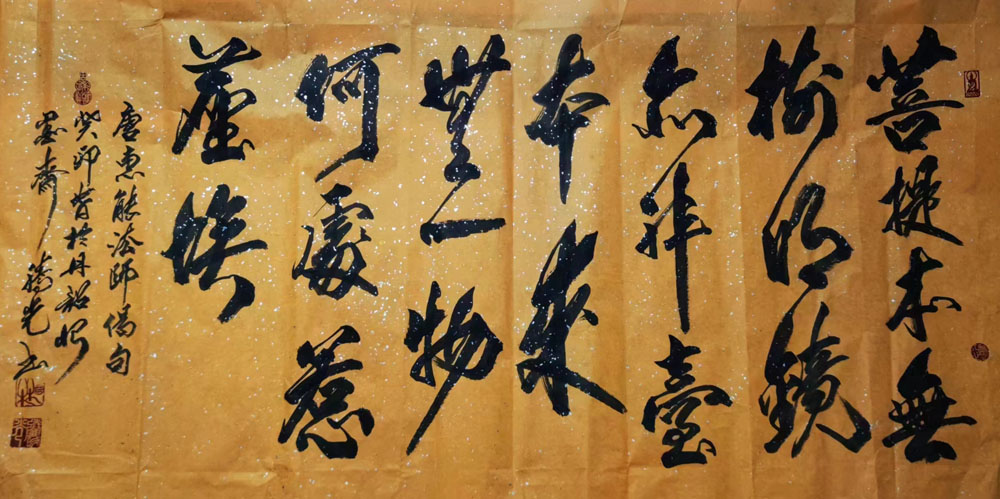 菩提本無
樹明鏡
亦非臺
本來
無一物
何處惹
塵埃
唐惠能法師偈句
癸卯 於丹韶
齋 光书